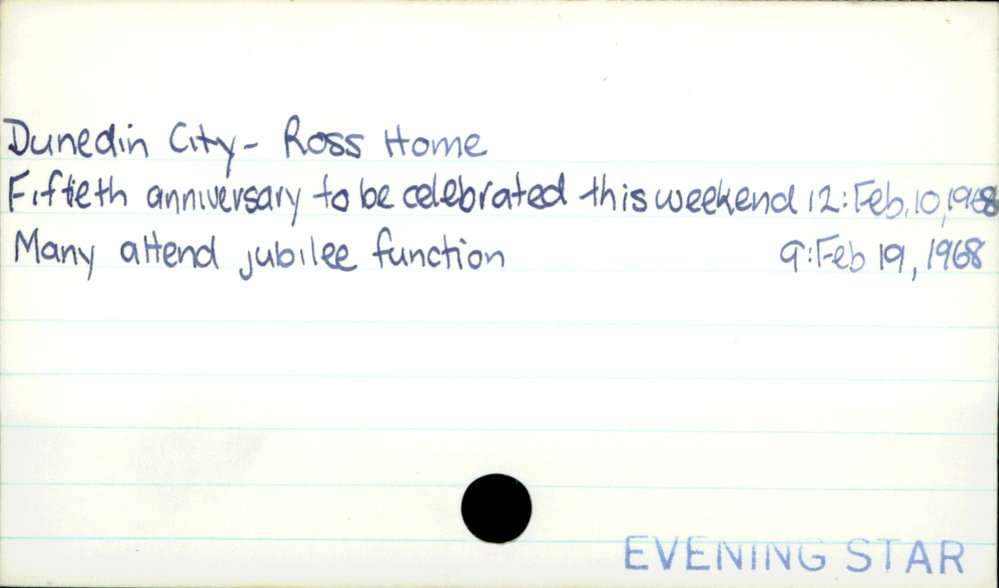 Dunedin City - Ross Home
Fiftieth anniversary to be celebrated this weekend 12: Feb. 10, 1968
Many attend jubilee function 9: Feb 19, 1968
EVENING STAR